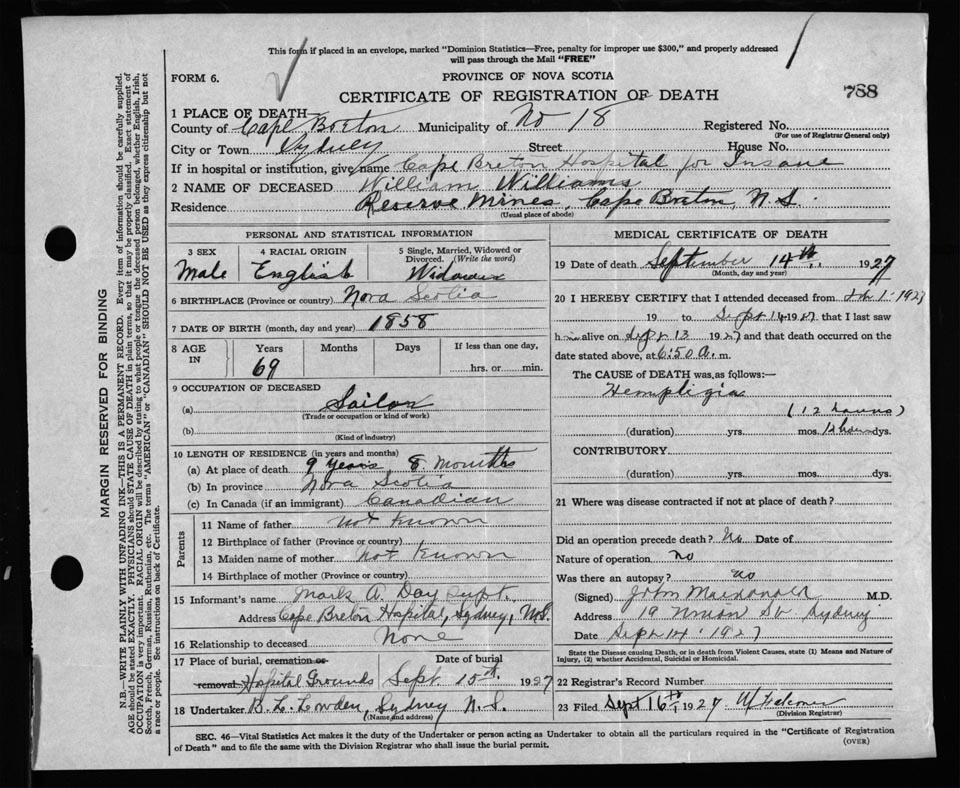 This form if placed in an envelope, marked "Dominion Statistics—Free, penalty for improper use $300," and properly addressed
will pass through the Mail "FREE"
FORM 6.
PROVINCE OF NOVA SCOTIA
CERTIFICATE OF REGISTRATION OF DEATH
788
1 PLACE OF DEATH
County of Cape Breton Municipality of No 18 Registered No.
(For use of Registrar General only)
City or Town Sydney Street House No.
If in hospital or institution, give name Cape Breton Hospital for Insane
2 NAME OF DECEASED William Williams
Residence Reserve Mines, Cape Breton, N.S.
(Usual place of abode)
PERSONAL AND STATISTICAL INFORMATION
3 SEX 4 RACIAL ORIGIN 5 Single, Married, Widowed or Divorced. (Write the word)
Male English Widower
6 BIRTHPLACE (Province or country) Nova Scotia
7 DATE OF BIRTH (month, day and year) 1858
8 AGE IN Years Months Days If less than one day,
69 hrs. or min.
9 OCCUPATION OF DECEASED
(a) Sailor
(Trade or occupation or kind of work)
(b)
(Kind of industry)
10 LENGTH OF RESIDENCE (in years and months)
(a) At place of death 9 years, 8 months
(b) In province Nova Scotia
(c) In Canada (if an immigrant) Canadian
Parents
11 Name of father not known
12 Birthplace of father (Province or country)
13 Maiden name of mother not known
14 Birthplace of mother (Province or country)
15 Informant's name Mark A. Day Supt.
Address Cape Breton Hospital, Sydney, N.S.
16 Relationship to deceased None
17 Place of burial, cremation or Date of burial
removal Hospital Grounds Sept. 15th. 1927
18 Undertaker Sydney N.S.
(Name and address)
MEDICAL CERTIFICATE OF DEATH
19 Date of death September 14th, 1927
(Month, day and year)
20 I HEREBY CERTIFY that I attended deceased from 1 1927
19 to Sept 14 1927 that I last saw
him alive on Sept 13 1927 and that death occurred on the
date stated above, at 6:50 a. m.
The CAUSE of DEATH was, as follows:—
Hemplegia
(12 hours)
(duration) yrs. mos. 12 hours dys.
CONTRIBUTORY
(duration) yrs. mos. dys.
21 Where was disease contracted if not at place of death?
Did an operation precede death? No Date of
Nature of operation no
Was there an autopsy? no
(Signed) John Macdonald M.D.
Address 19 Union St. Sydney
Date Sept 14. 1927
State the Disease causing Death, or in death from Violent Causes, state (1) Means and Nature of
Injury, (2) whether Accidental, Suicidal or Homicidal.
22 Registrar's Record Number
23 Filed Sept 16th 1927
(Division Registrar)
SEC. 46—Vital Statistics Act makes it the duty of the Undertaker or person acting as Undertaker to obtain all the particulars required in the "Certificate of Registration
of Death" and to file the same with the Division Registrar who shall issue the burial permit.
(OVER)
MARGIN RESERVED FOR BINDING
N.B.—WRITE PLAINLY WITH UNFADING INK—THIS IS A PERMANENT RECORD. Every item of information should be carefully supplied.
AGE should be stated EXACTLY. PHYSICIANS should STATE CAUSE OF DEATH in plain terms, so that it may be properly classified. Exact statement of
OCCUPATION is very important. RACIAL ORIGIN will be described by stating to what people or tongue the deceased person belonged, whether English, Irish,
Scotch, French, German, Russian, Ruthenian, etc. The terms "AMERICAN" or "CANADIAN" SHOULD NOT BE USED as they express citizenship but not
a race or people. See instructions on back of Certificate.